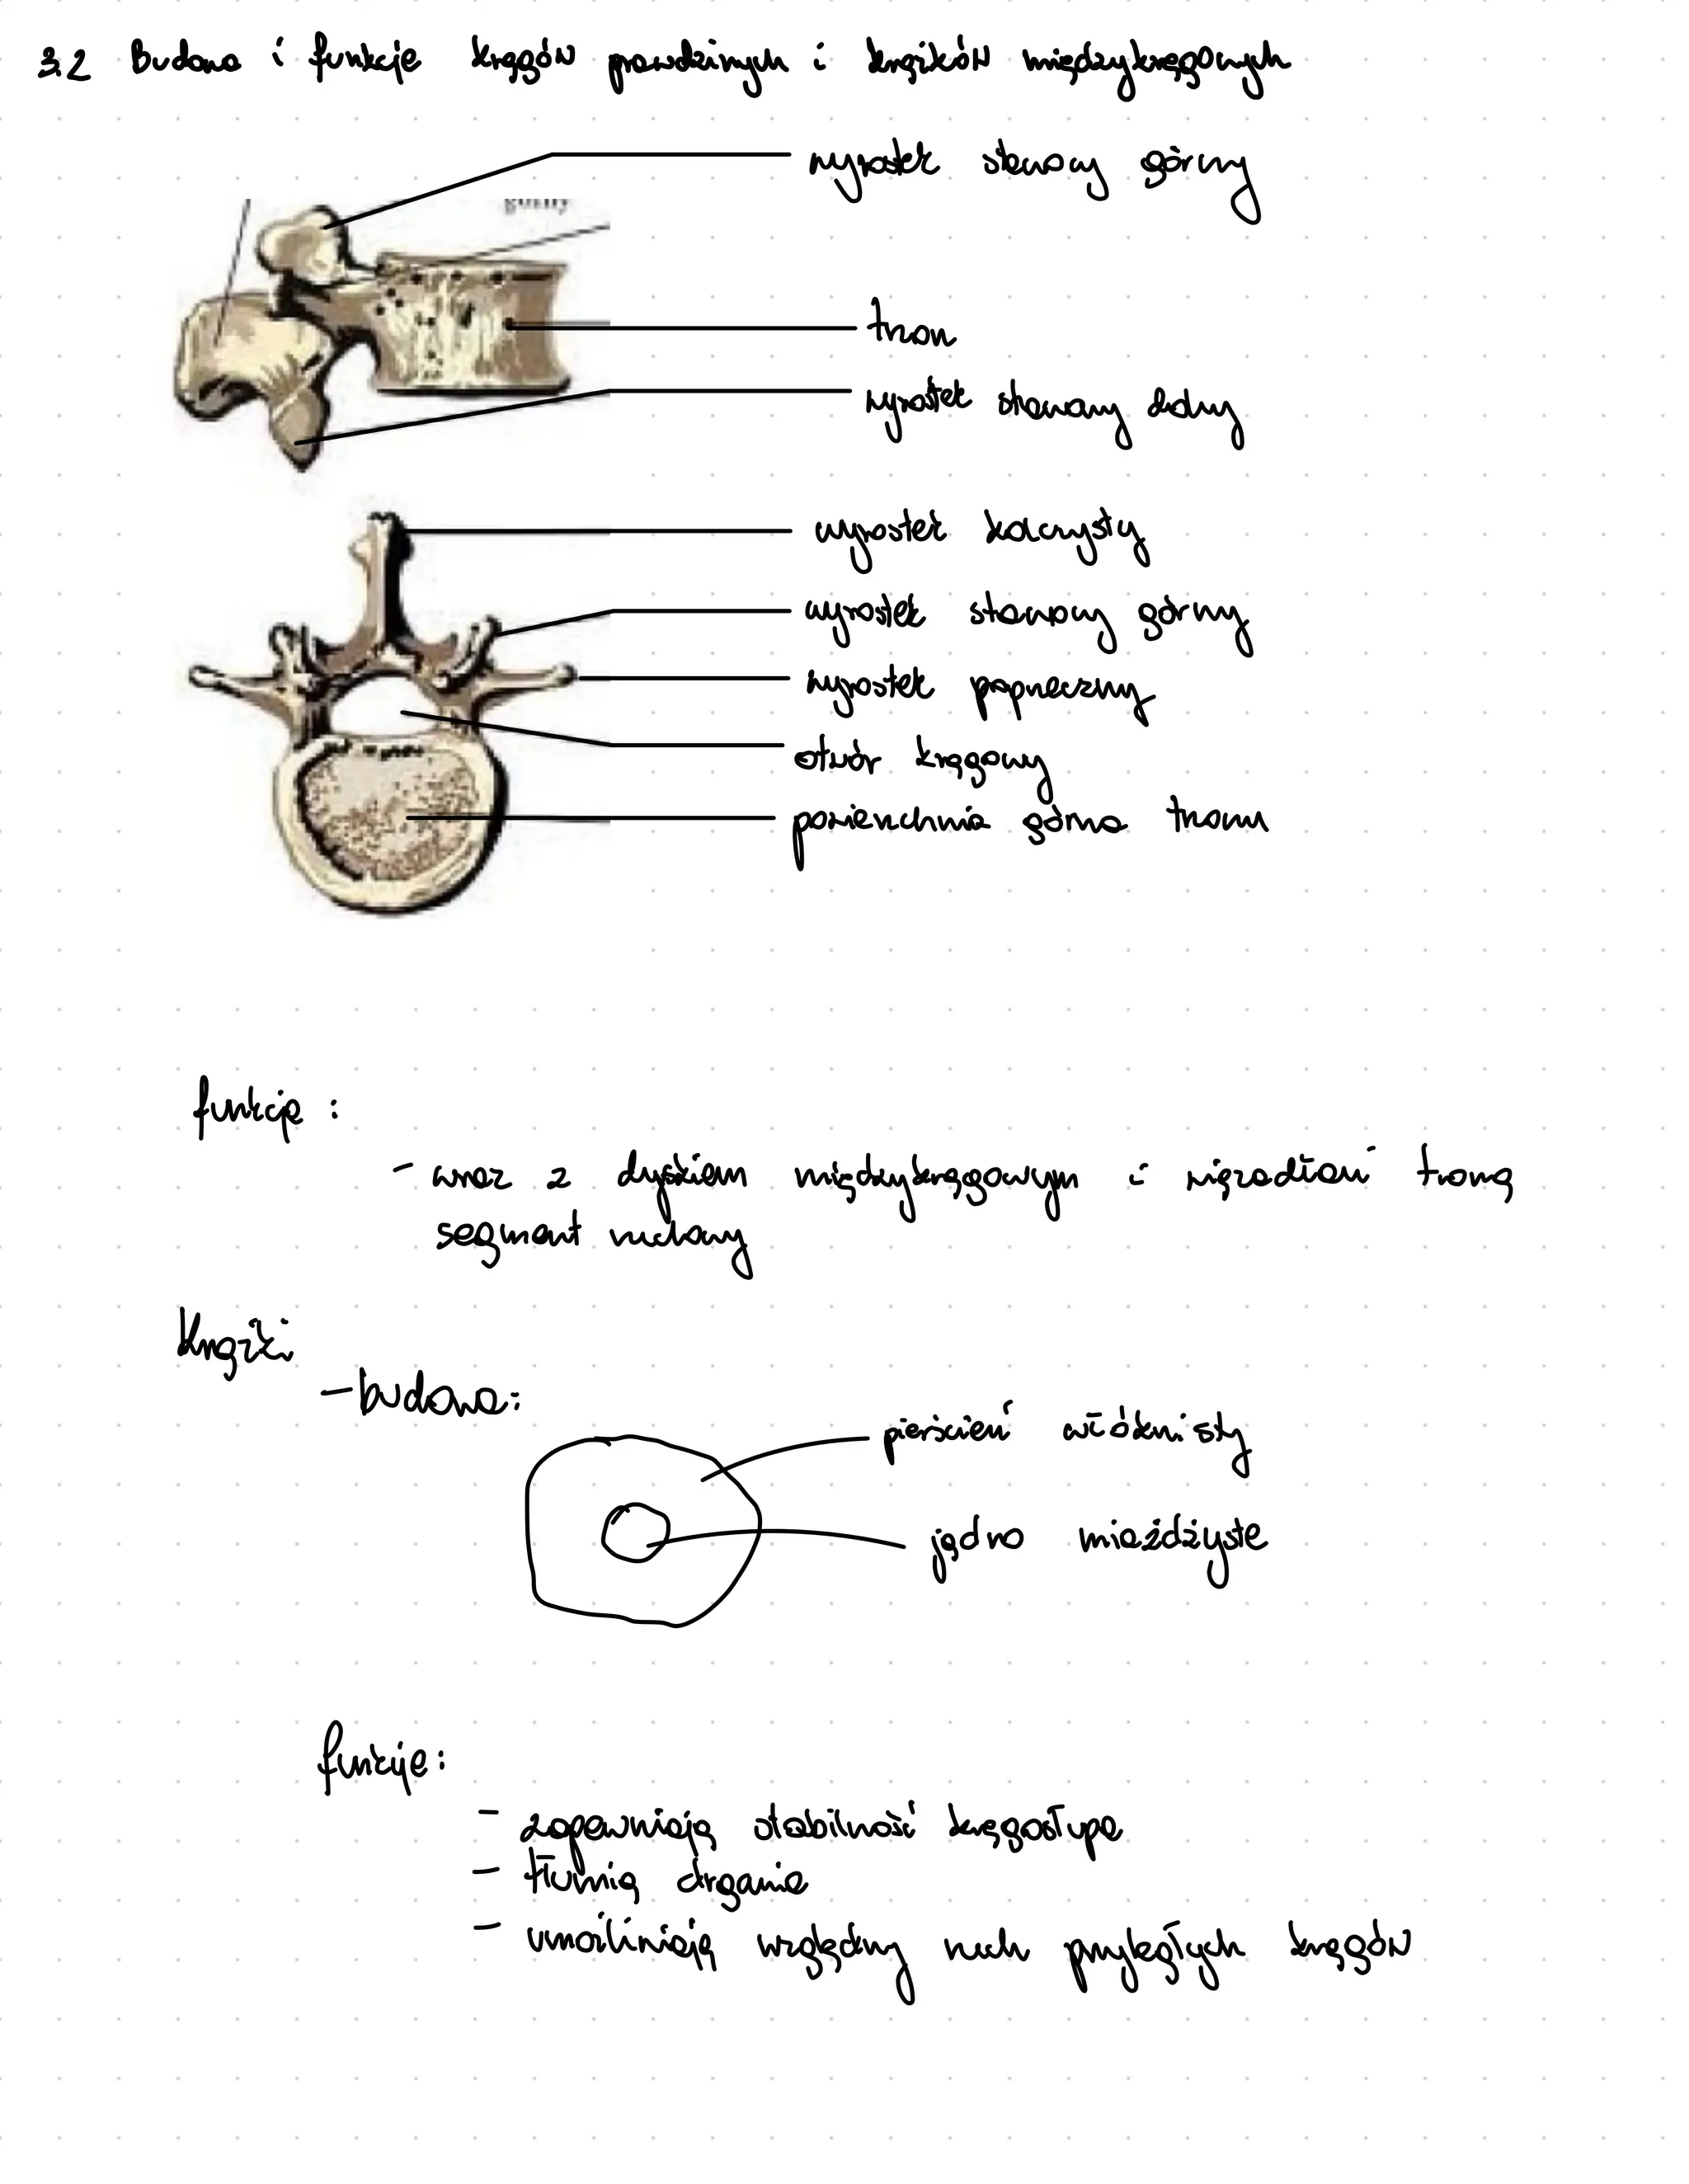 3.2 Budowa i funkcje kręgów prawdziwych i krążków międzykręgowych
wyrostek stawowy górny
górny
trzon
wyrostek stawowy dolny
wyrostek kolczysty
wyrostek stawowy górny
wyrostek poprzeczny
otwór kręgowy
powierzchnia górna trzonu
funkcje :
- wraz z dyskiem międzykręgowym i więzadłami tworzą
segment ruchowy
Krążki
- budowa:
pierścień włóknisty
jądro miażdżyste
funkcje:
- zapewniają stabilność kręgosłupa
- tłumią drgania
- umożliwiają względny ruch przyległych kręgów